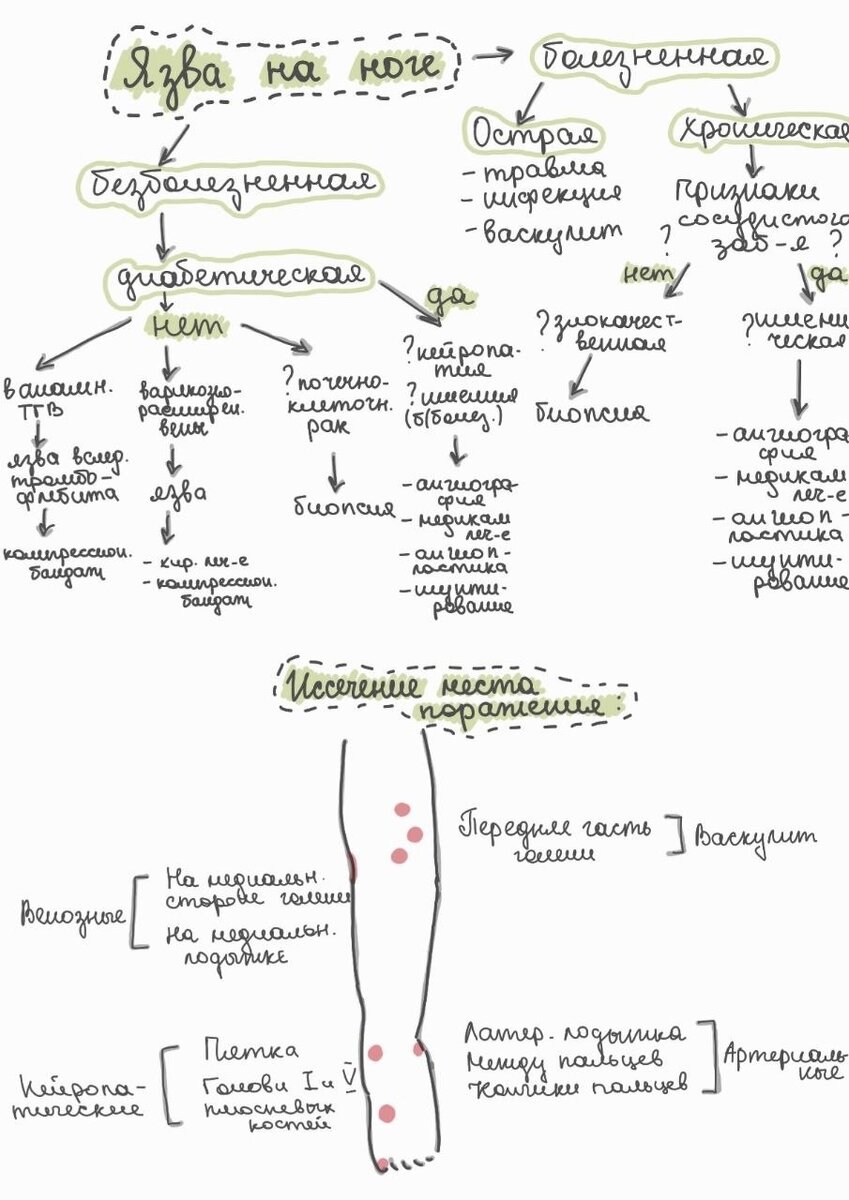 Язва на ноге
болезненная
Острая
- травма
- инфекция
- васкулит
Хроническая
Признаки
сосудистого
заб-я ?
?
нет
да
? злокачест-
венная
биопсия
? ишеми-
ческая
- ангиогра-
фия
- медикам
леч-е
- ангиоп-
ластика
- шунти-
рование
безболезненная
диабетическая
нет
да
в анамн.
ТГВ
язва вслед.
тромбо-
флебита
компрессион.
бандаж
варикозно-
расширен.
вены
язва
- хир. леч-е
- компрессион.
бандаж
? почечно-
клеточн.
рак
биопсия
? нейропа-
тия
? ишемия
(б/болез.)
- ангиогра-
фия
- медикам
леч-е
- ангиоп-
ластика
- шунти-
рование
Иссечение места
поражения:
Передняя часть
голени
Васкулит
Венозные
На медиальн.
стороне голени
На медиальн.
лодыжке
Нейропа-
тические
Пятка
Голови I и V
плюсневых
костей
Латер. лодыжка
Между пальцев
Кончики пальцев
Артериаль-
ные